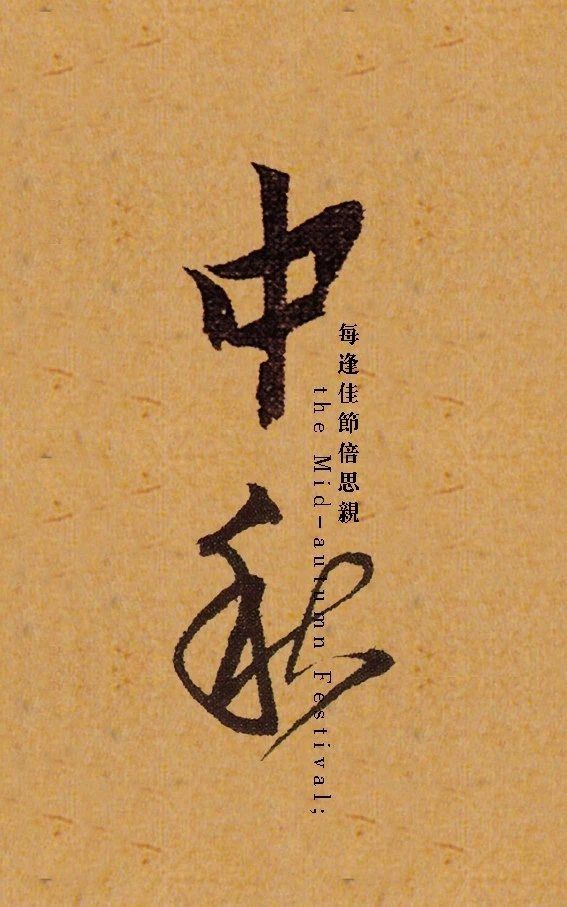 中秋
每逢佳節倍思親
the Mid-autumn Festival;